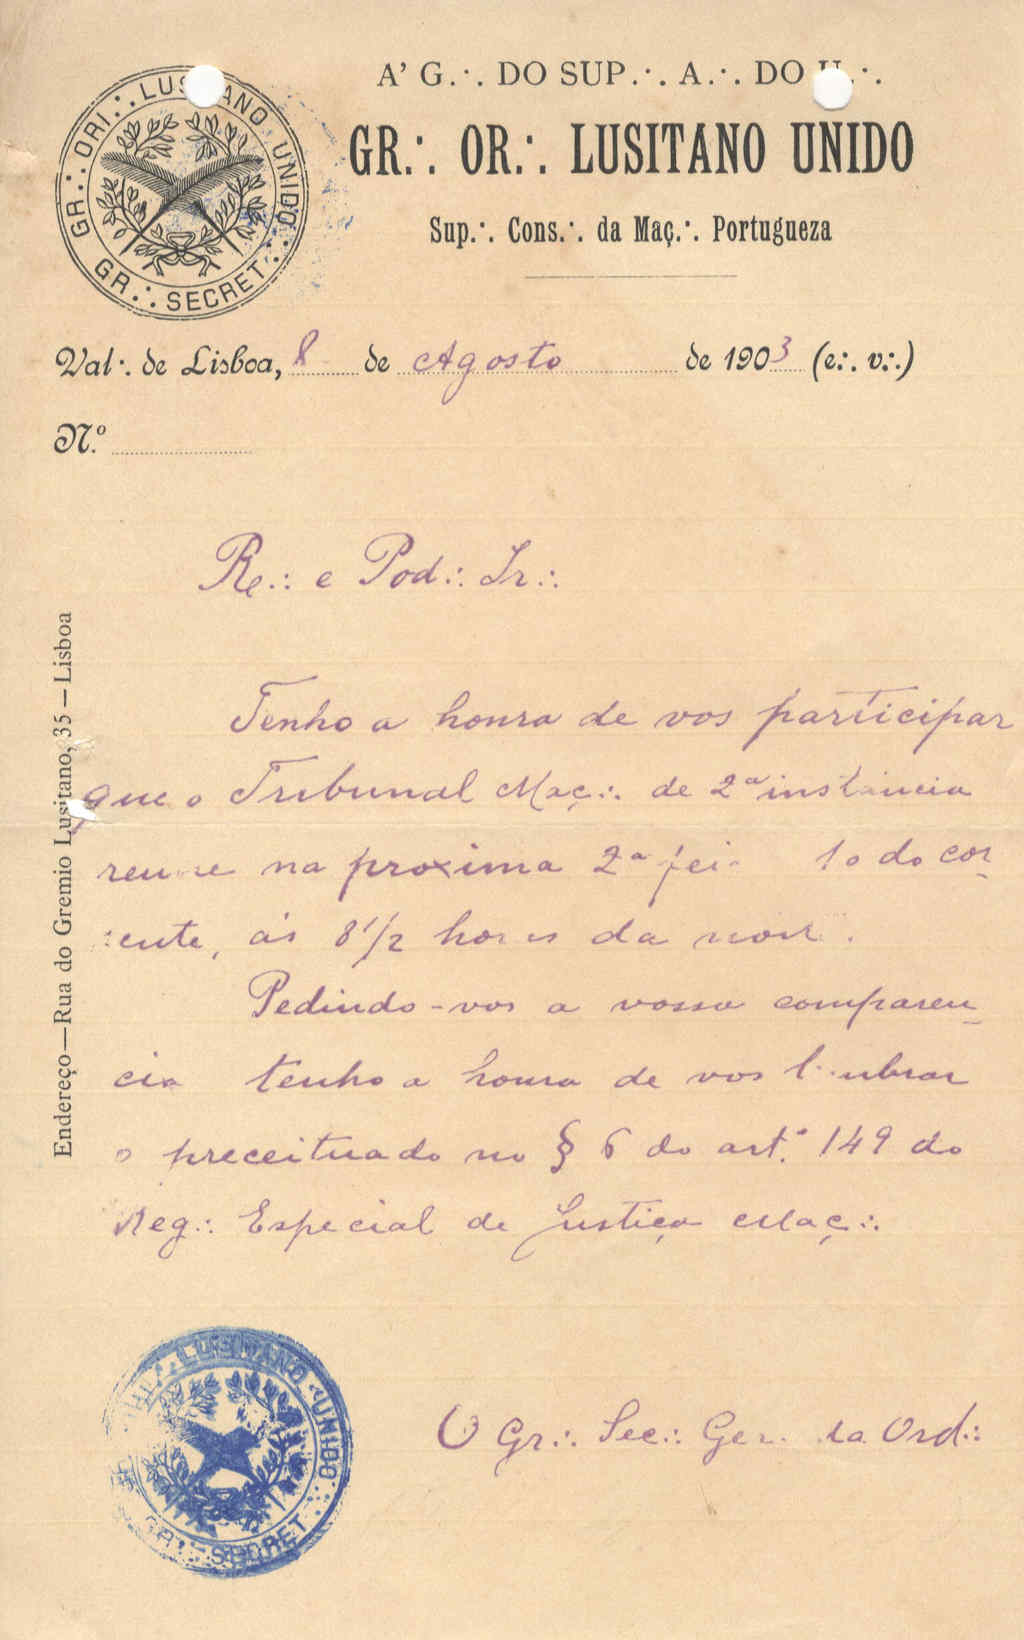 A' G.·. DO SUP.·. A.·. DO U.·.
GR.·. OR.·. LUSITANO UNIDO
Sup.·. Cons.·. da Maç.·. Portugueza
GR.·. ORI.·. LUSITANO UNIDO.·.
GR.·. SECRET.·.
Val.·. de Lisboa, 8 de Agosto de 1903 (e.·. v.·.)
N.º
Re.·. e Pod.·. Ir.·.
Tenho a honra de vos participar
que o Tribunal Maç.·. de 2ª instancia
reune na proxima 2ª feira 10 do cor-
rente, ás 8 1/2 horas da noite.
Pedindo-vos a vossa comparen-
cia tenho a honra de vos lembrar
o preceituado no § 6 do art.º 149 do
Reg.·. Especial de Justiça Maç.·.
O Gr.·. Sec.·. Ger.·. da Ord.·.
Endereço—Rua do Gremio Lusitano, 35—Lisboa
ORI.·. LUSITANO UNIDO.·.
GR.·. SECRET.·.